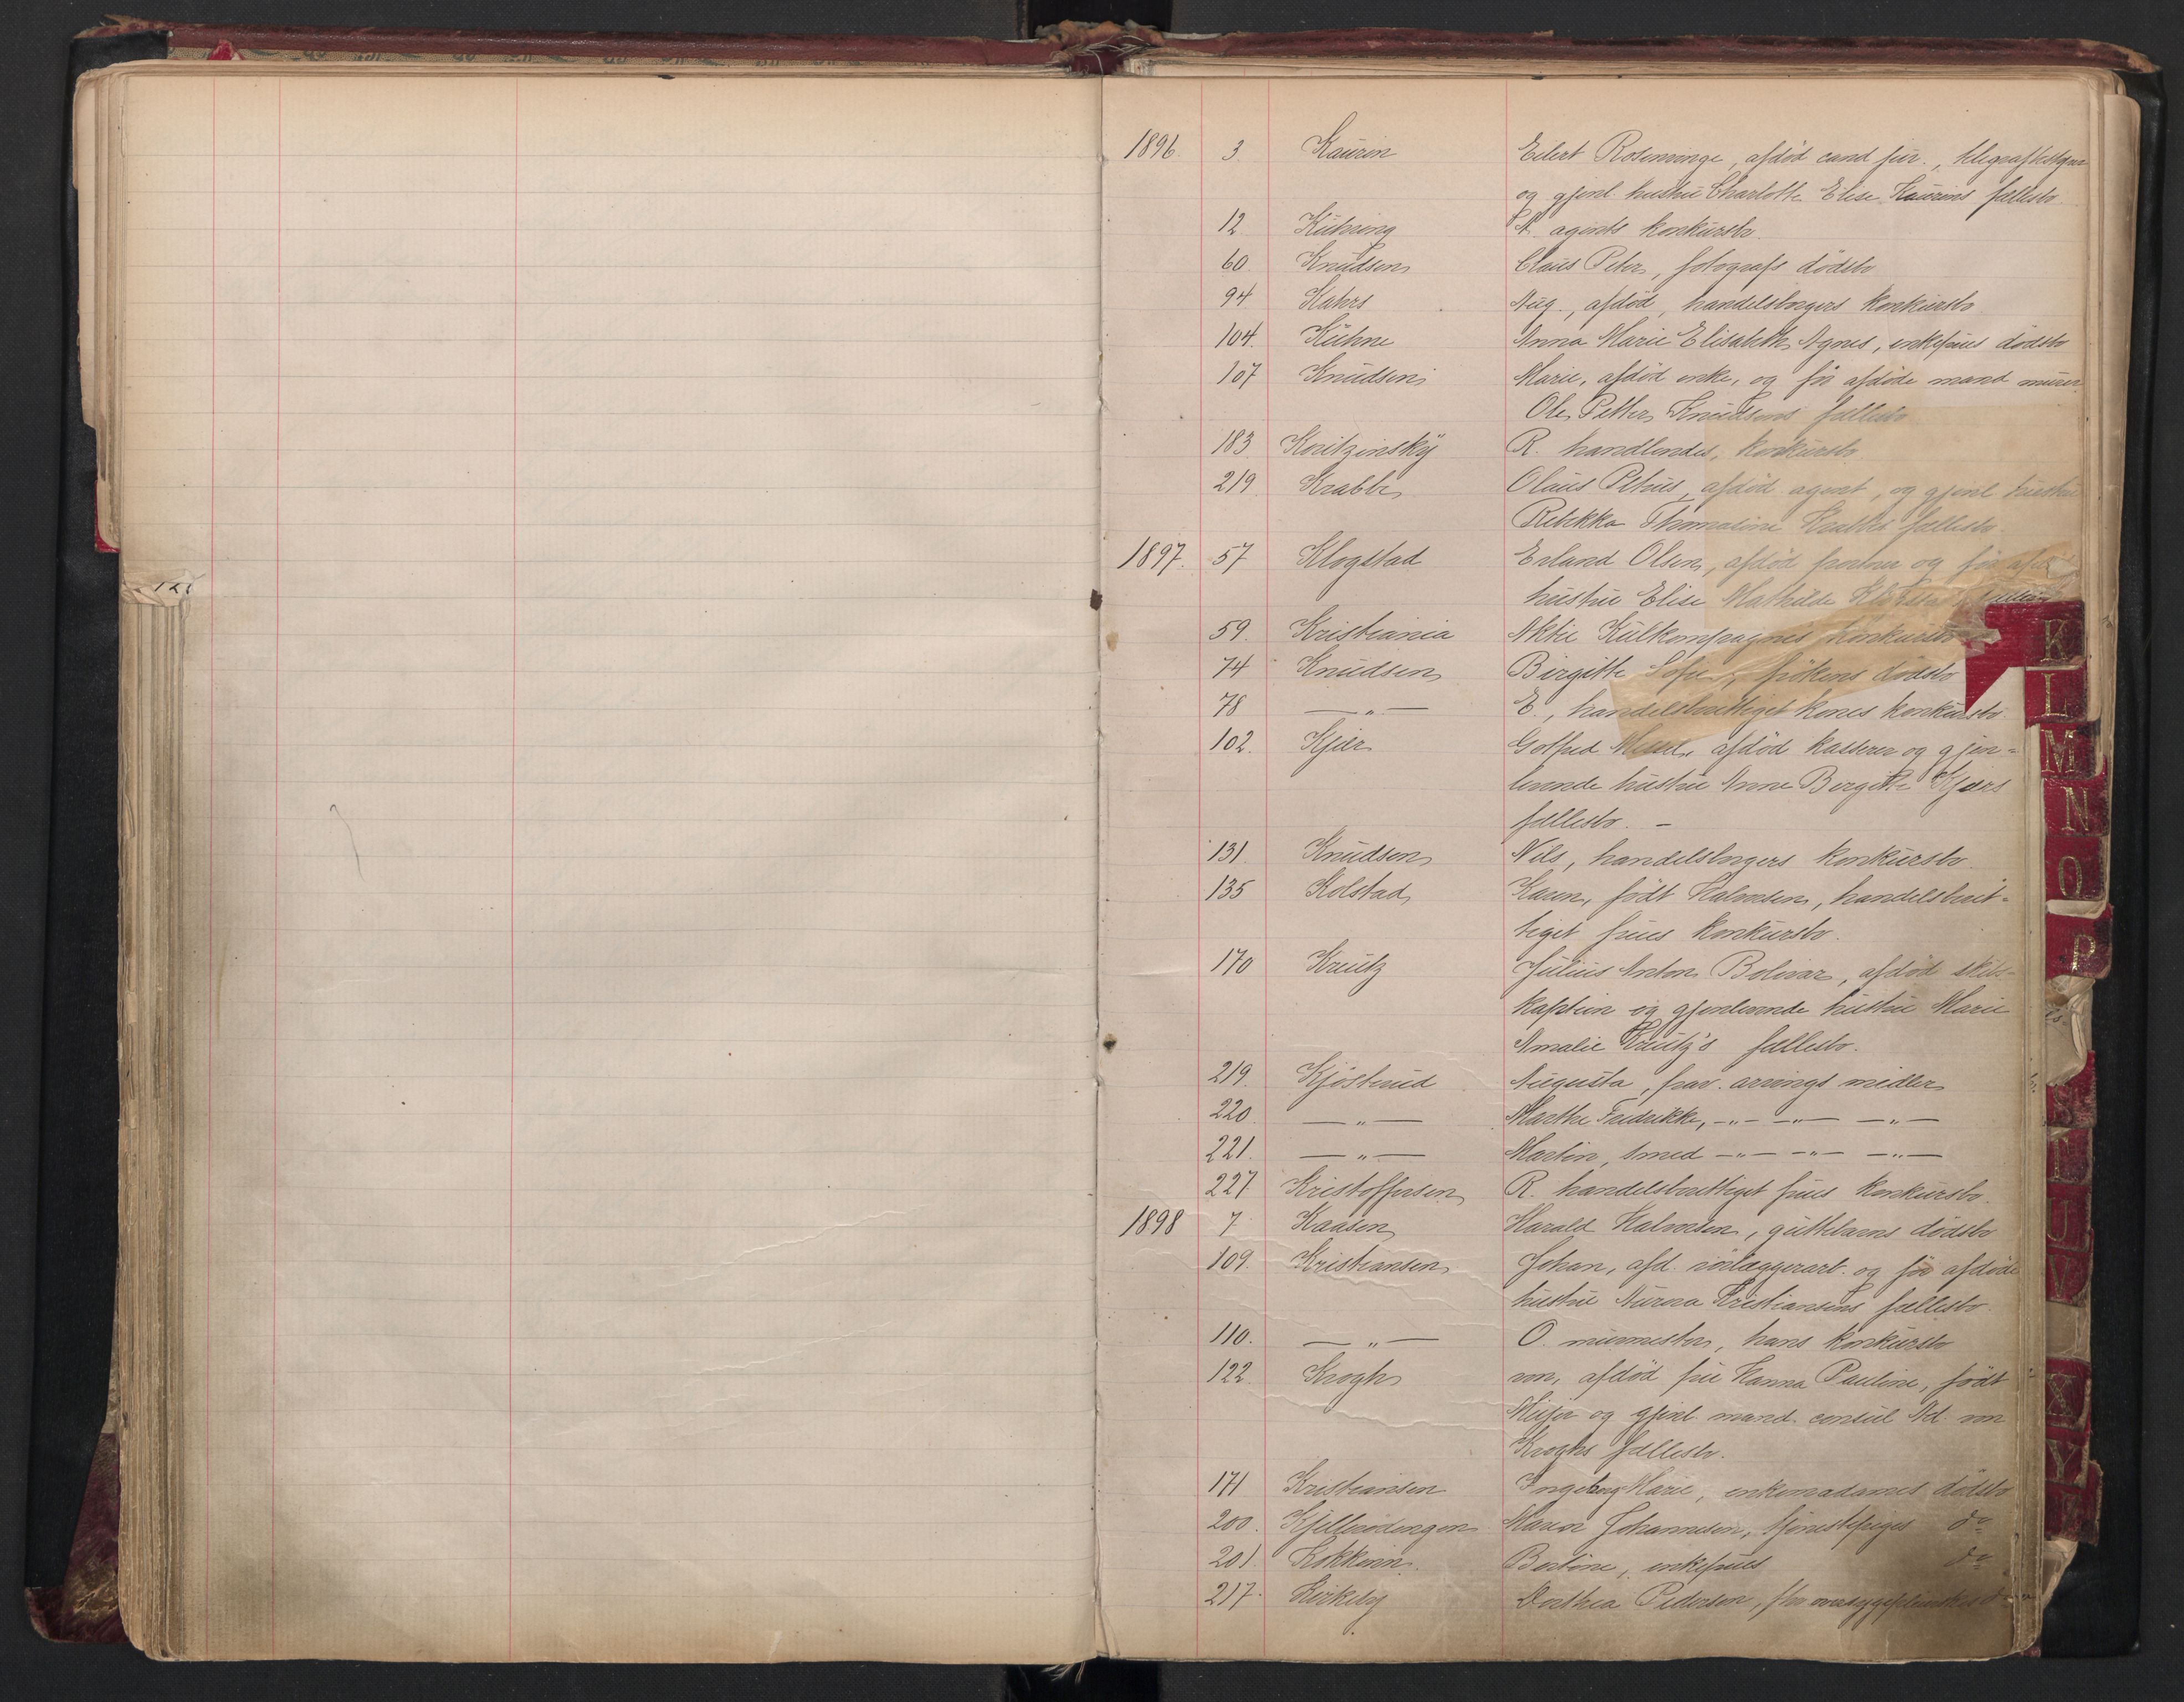 1896. 3 Kaurin Eilert Rosenvinge, afdød cand jur.,
og gjenl. hustru Charlotte Elise Kaurins fællesbo
12. Kühring A. agents konkursbo.
60. Knudsen Claus Peter, fotografs dødsbo
94 Kahrs Aug., afdød, handelsborgers konkursbo
104. Kühne Anna Marie Elisabeth Agnes, enkefrues dødsbo
107 Knudsen Marie, afdød enke, og før afdøde mand murer
Ole Petter Knudsens fællesbo
183. Koritzinsky R. handlendes, konkursbo.
219. Krabbe Olaus Petrus, afdød agent, og gjenl hustru
Rebekka Thomaline Krabbes fællesbo.
1897. 57 Klogstad Erland Olsen, afdød portner og før afdøde
hustru Elise Mathilde
59. Kristiania Aktie Kulkompagnis konkursbo
74 Knudsen Birgitte Sofie, frøkens dødsbo
78 —„— E., handelsberettiget kones konkursbo.
102. Kjær Gotfred, afdød kasserer og gjen-
levende hustru Anne Birgitte Kjærs
fællesbo. —
131. Knudsen Nils, handelsborgers konkursbo
135 Kolstad Karen, født Halvorsen, handelsberet-
tiget frues konkursbo.
170 Kreutz Julius Anton Bolivar, afdød skibs-
kaptein og gjenlevende hustru Marie
Amalie Kreutz's fællesbo.
219. Kjøsterud Augusta, frav. arvings midler
220 —„— Marthe Fredrikke, —„— —„— —„—
221. —„— Martin, smed —„— —„— —„—
227. Kristoffersen R. handelsberettiget frues konkursbo.
1898 7. Kaasen Harald Halvorsen, guttebarns dødsbo
109. Kristiansen Johan, afd. rørlæggerarb. og før afdøde
hustru Aurora Kristiansens fællesbo.
110. —„— O. murmester, hans konkursbo
122. Krogh von, afdød frue Hanna Pauline, født
og gjenl. mand consul Ad. von
Kroghs fællesbo.
171 Kristiansen Ingeborg Marie, enkemadames dødsbo
200. Maren Johannesen, tjenestepiges do
201. Bertine, enkefrues do
217. Kirkeby Dorthea Pedersen,
K
L
M
N
O
P
S
T
U
V
X
Y